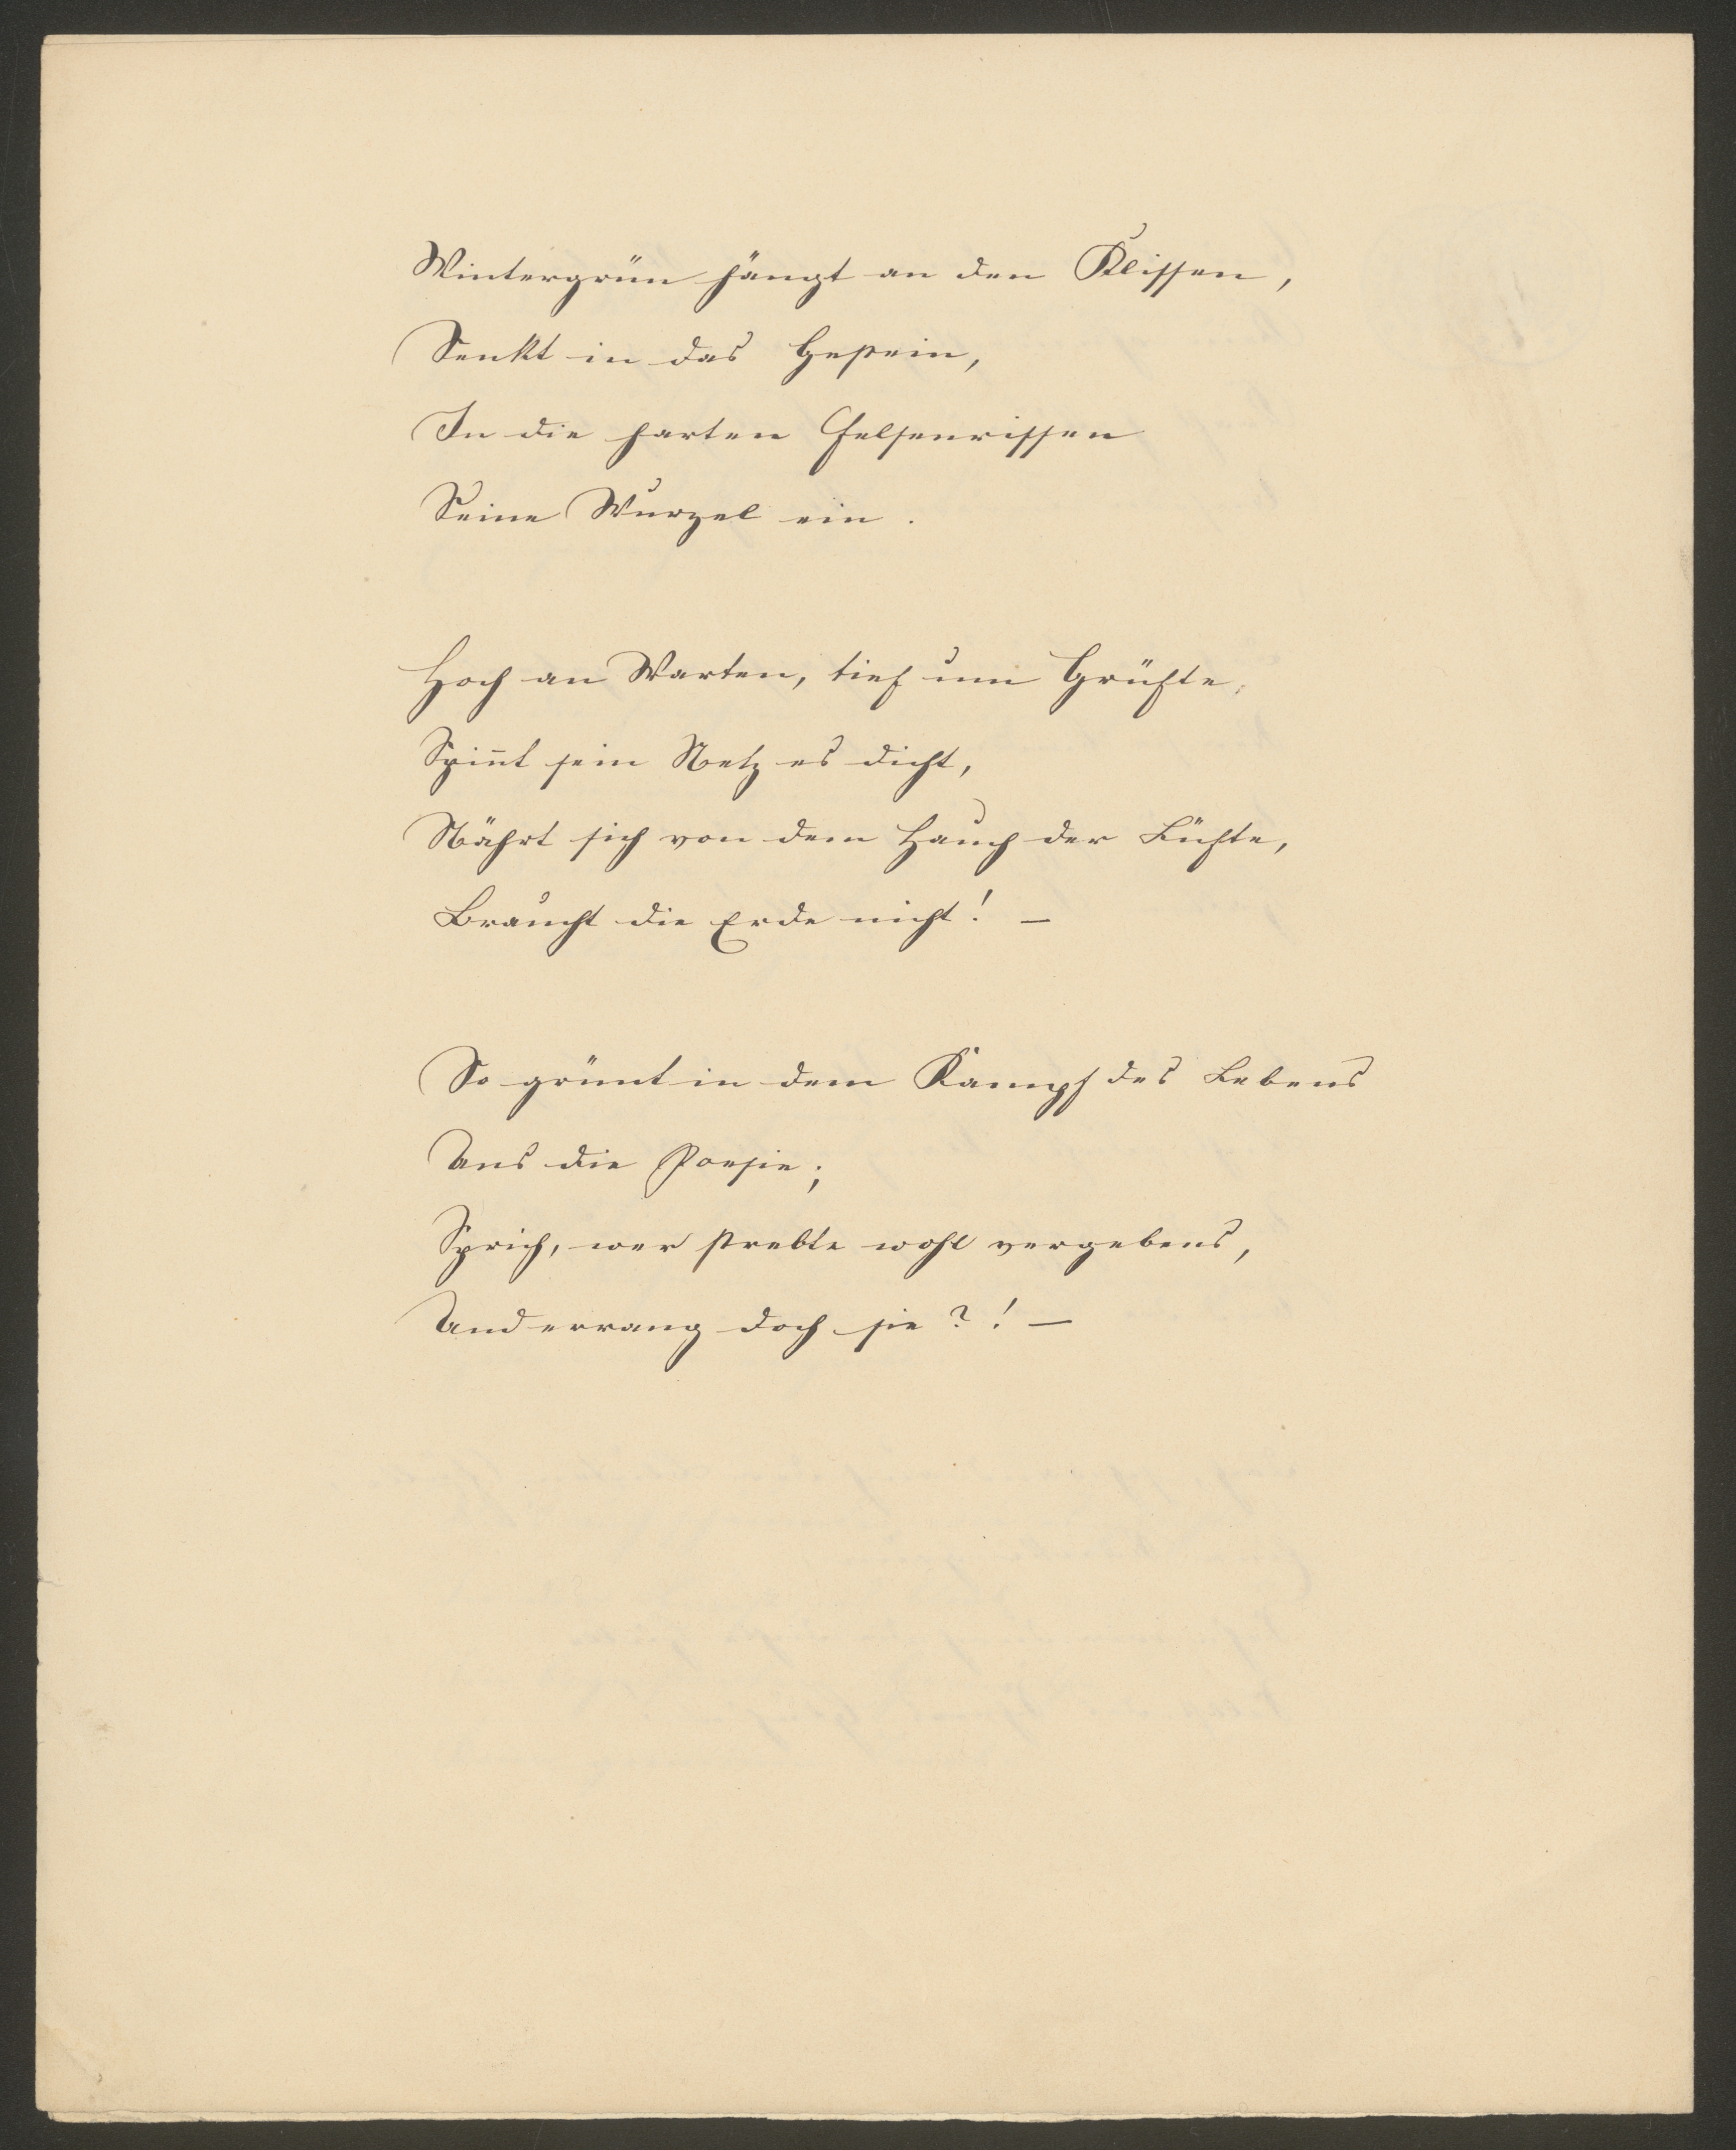 Wintergrün hängt an den Klissen,
Senkt in das Gestein,
In die harten Felsenrissen
Seine Wurzel ein.
Hoch an Warten, tief um Grüfte,
Spin̄t sein Netz es dicht,
Nährt sich von dem Hauch der Lüfte,
Braucht die Erde nicht! –
So grünt in dem Kampf des Lebens
Uns die Poesie;
Sprich, wer strebte wohl vergebens,
Und errang doch sie?! –